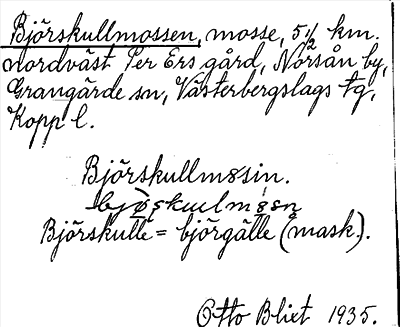 Björskullmossen, mosse, 5 1/2 km.
nordväst Per Ers gård, Norsån by,
Grangärde sn, Västerbergslags tg,
Kopp l.
Björskullmssin.
Björskulle = björgälle (mask).
Otto Blixt 1935.